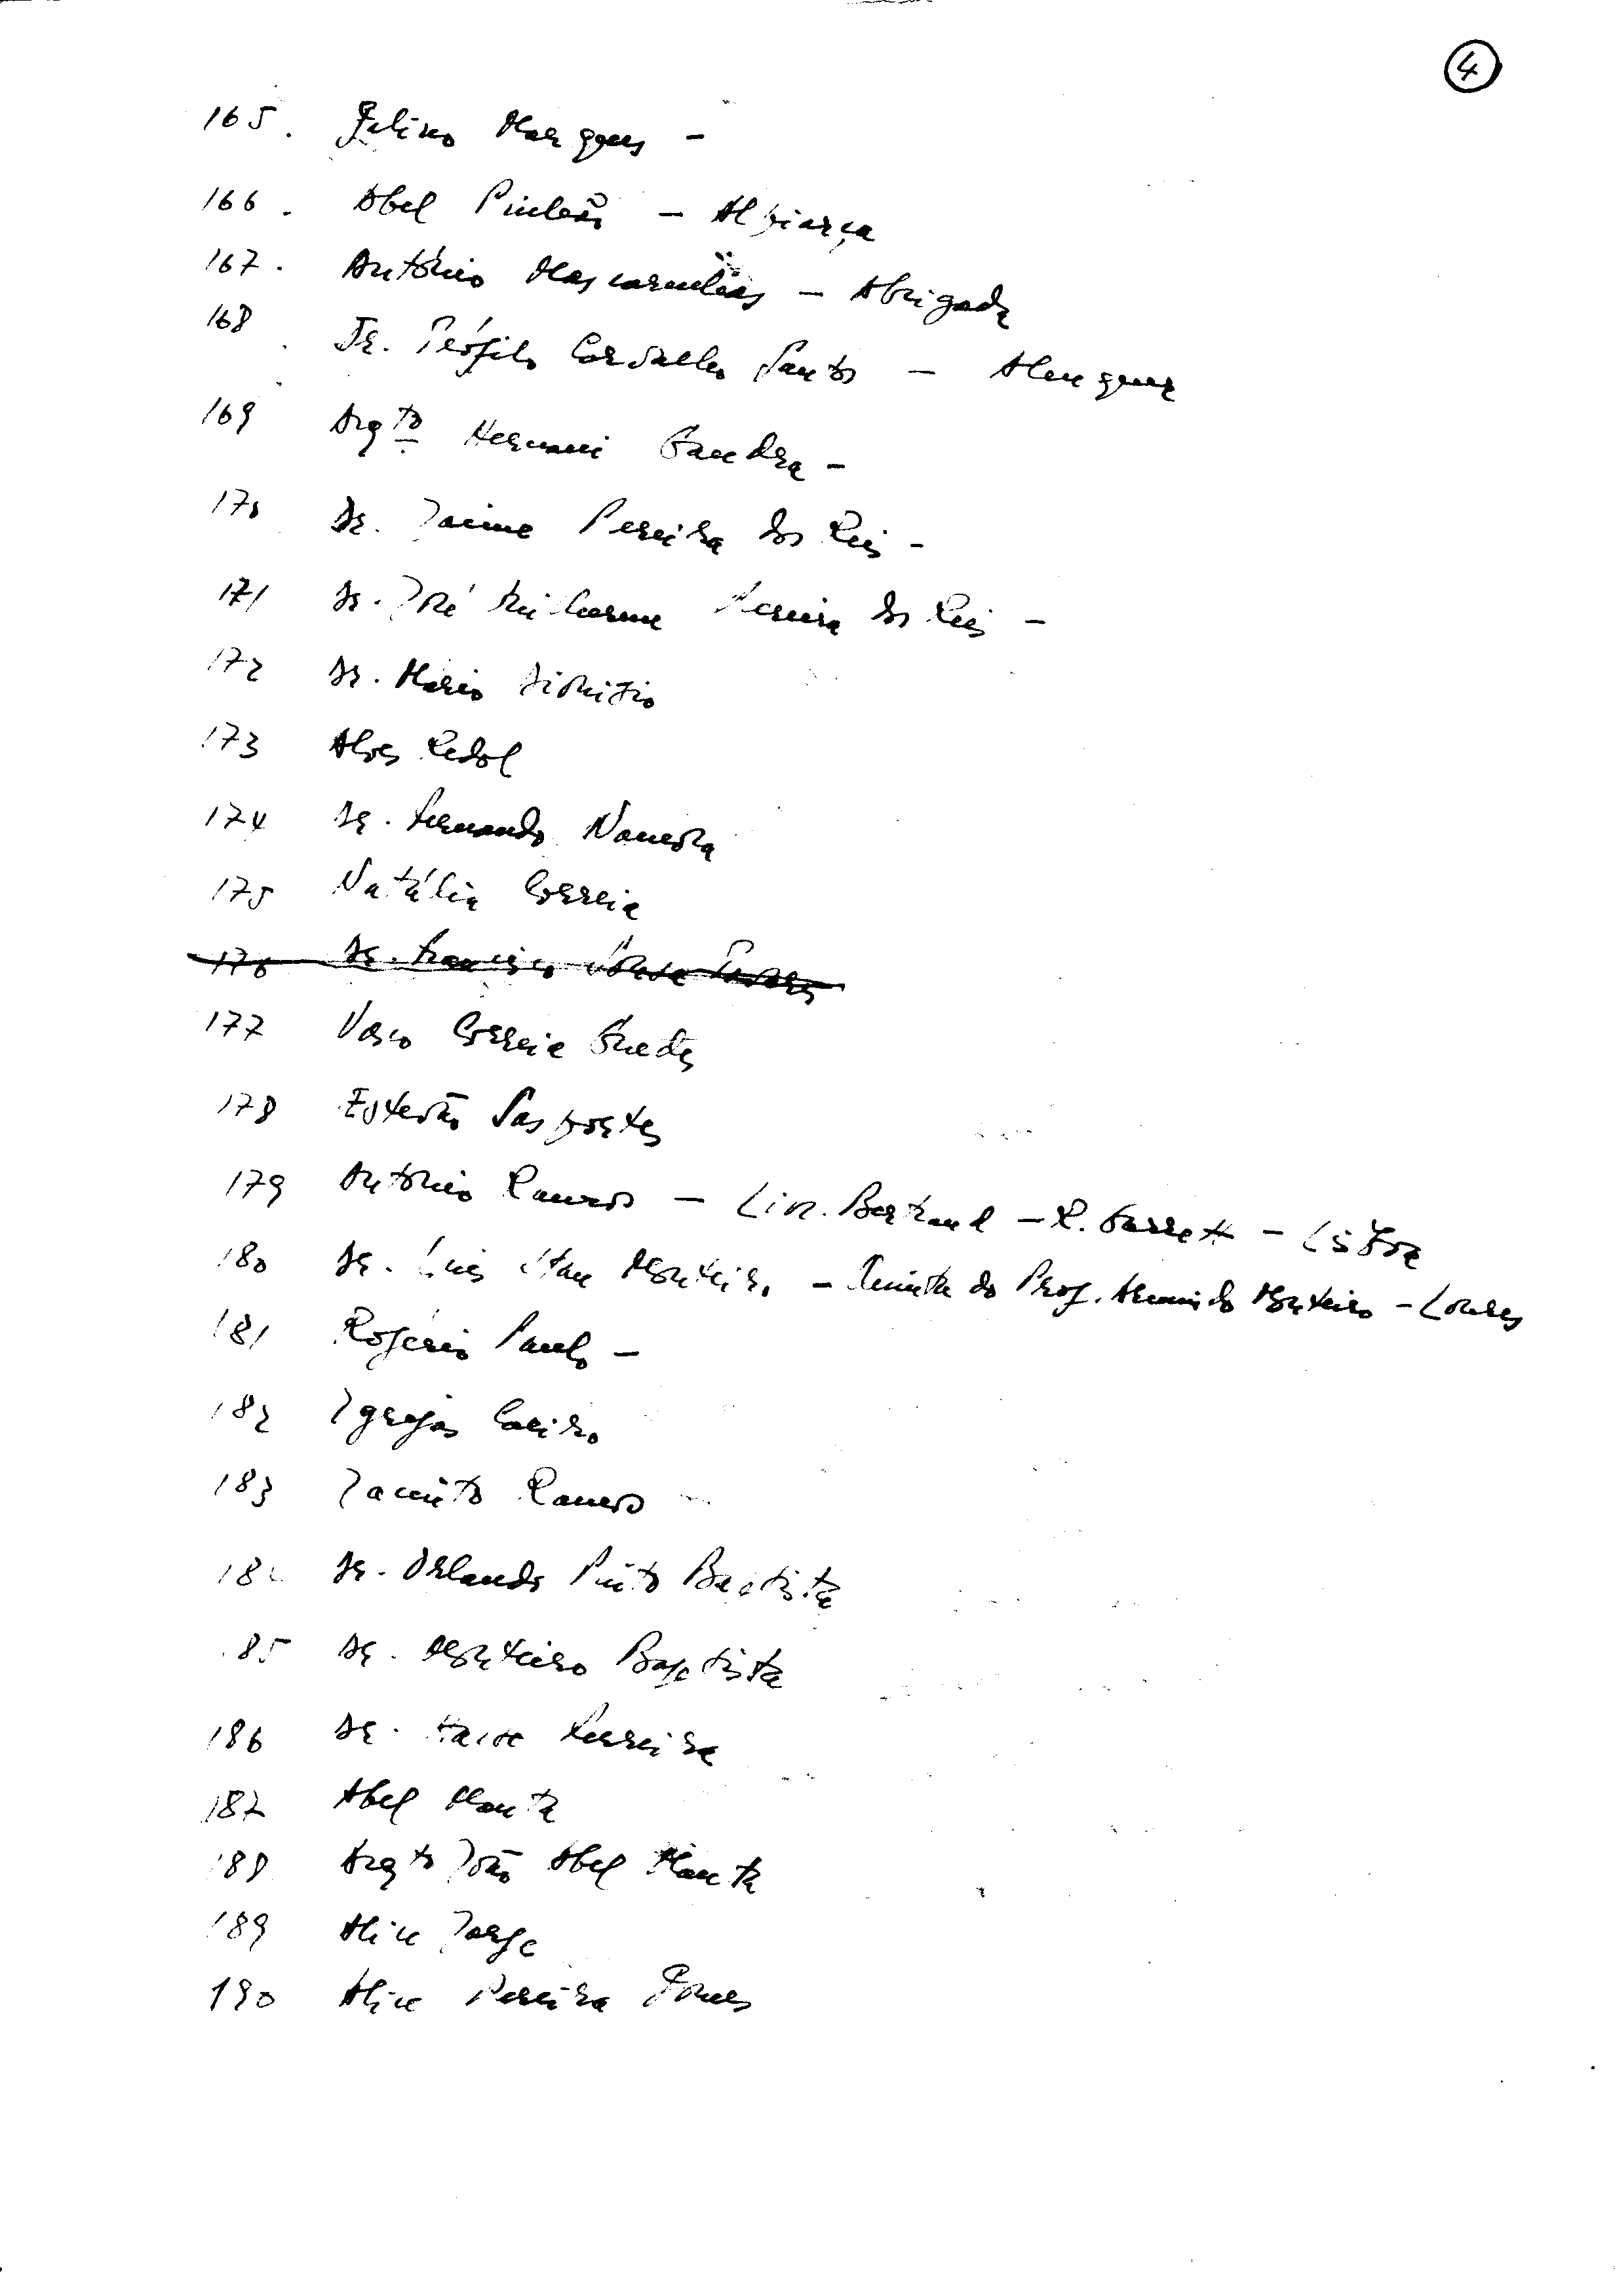 4
165. Marques -
166. Abel Pinhão - Alpiarça
167. António Mascarenhas - Abrigada
168. Dr. Teófilo Carvalho Santos - Alenquer
169 Arqto Hernani Gandra -
170 Dr. Jaime Pereira dos Reis -
171 Dr. José Guilherme Pereira dos Reis -
172 Dr. Mário Dionisio
173 Alves Redol
174 Dr. Fernando Namora
175 Natália Correia
176 Dr. Francisco Sousa Tavares
177 Vasco Correia Guedes
178 Estevão Sasportes
179 António Ramos - Liv. Bertrand - R. Garrett - Lisboa
180 Dr. Luis Stau Monteiro - Quinta do Prof. Armindo Monteiro - Loures
181 Rogério Paulo -
182 Igrejas Caeiro
183 Jacinto Ramos
18 Dr. Orlando Pinto Baptista
85 Dr. Monteiro Baptista
186 Dr. Ferreira
187 Abel Manta
188 Arqto João Abel Manta
189 Alice Jorge
190 Alice Pereira Gomes